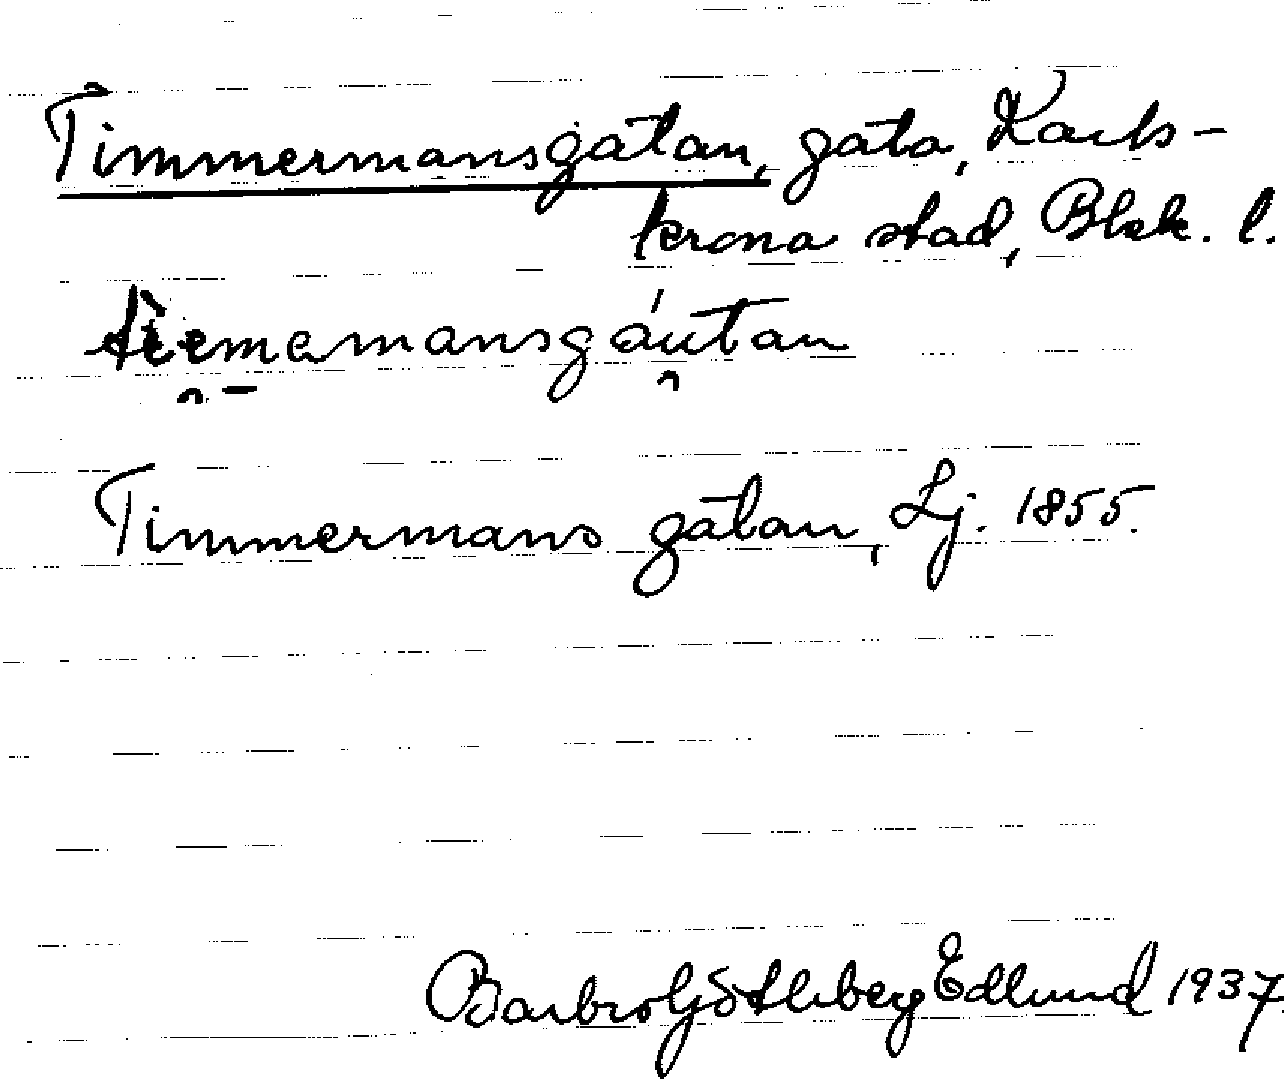 Timmermansgatan, gata, Karls-
krona stad, Blek. l.
Timmermans gatan, Lj. 1855.
Barbro Götleberg Edlund 1937.